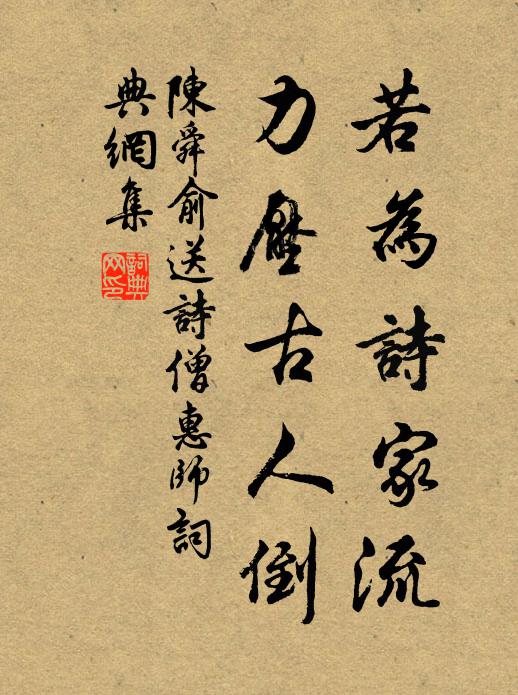 若為詩家流
力壓古人倒
陳舜俞送詩僧惠師詞
典網集
詞典
网印